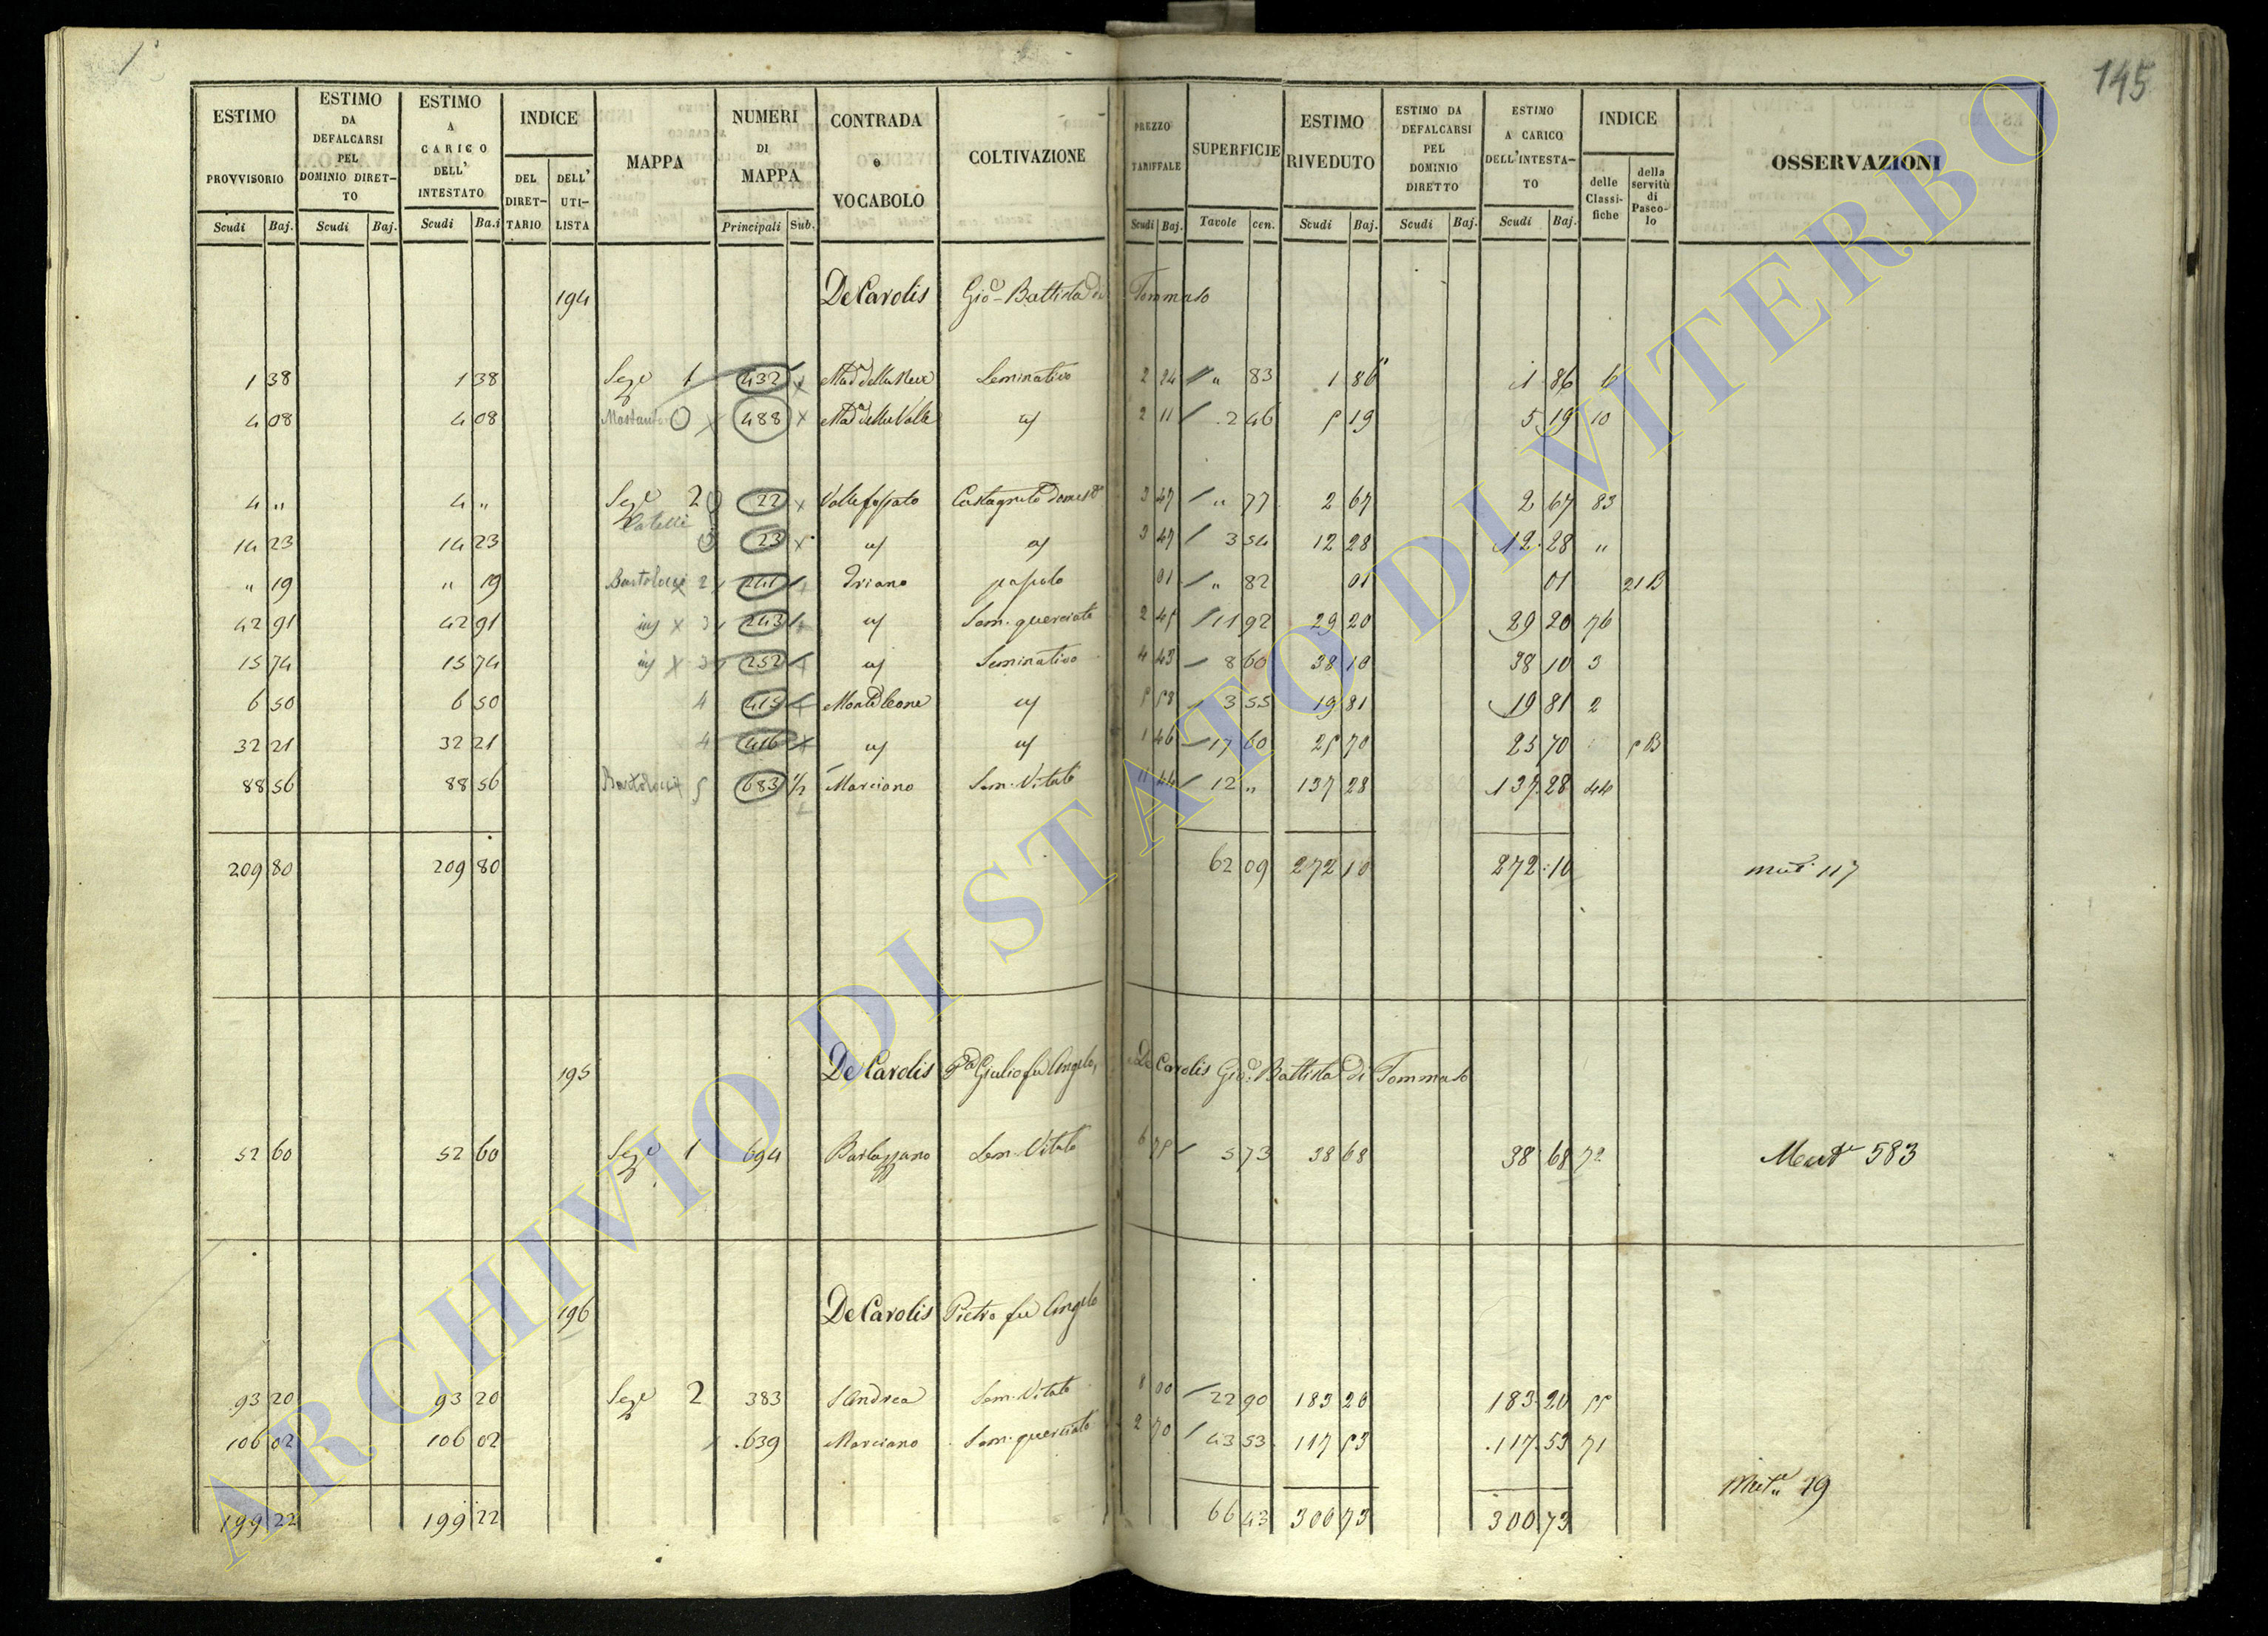 1
145
ESTIMO PROVVISORIO
ESTIMO DA DEFALCARSI PEL DOMINIO DIRETTO
ESTIMO A CARICO DELL' INTESTATO
INDICE
DEL DIRETTARIO
DELL' UTILISTA
MAPPA
NUMERI DI MAPPA
CONTRADA o VOCABOLO
COLTIVAZIONE
PREZZO TARIFFALE
SUPERFICIE
ESTIMO RIVEDUTO
ESTIMO DA DEFALCARSI PEL DOMINIO DIRETTO
ESTIMO A CARICO DELL'INTESTATO
INDICE
delle Classifiche
della servitù di Pascolo
OSSERVAZIONI
Scudi Baj. Scudi Baj. Scudi Ba.i Principali Sub. Scudi Baj. Tavole cen. Scudi Baj. Scudi Baj. Scudi Baj.
194 De Carolis Gio. Battista di Tommaso
1 38 1 38 Sez.e 1 432 Mad.a della Neve Seminativo 2 24 " 83 1 86 1 86 6
4 08 4 08 488 Mad.a della Valle 2 11 2 46 5 19 5 19 10
4 " 4 " Sez.e 2 22 Vallefossato Castagneto domes.o 3 47 " 77 2 67 2 67 83
14 23 14 23 23 3 47 3 54 12 28 12 28 "
" 19 " 19 Bartolocci 2 241 Triano pascolo 01 " 82 01 01 21 B
42 91 42 91 3 243 Sem. querciato 2 45 11 92 29 20 29 20 76
15 74 15 74 3 252 Seminativo 4 43 8 60 38 10 38 10 3
6 50 6 50 4 415 Monteleone 5 58 3 55 19 81 19 81 2
32 21 32 21 4 416 1 46 17 60 25 70 25 70 5 B
88 56 88 56 Bartolocci 5 683 1/2 Marciano Sem. Vitato 11 44 12 " 137 28 137 28 44
209 80 209 80 62 09 272 10 272 10 mut. 117
195 De Carolis Giulio fu Angelo, De Carolis Gio. Battista di Tommaso
52 60 52 60 Sez.e 1 694 Barlozzano Sem. Vitato 6 75 5 73 38 68 38 68 72 Mut.e 583
196 De Carolis Pietro fu Angelo
93 20 93 20 Sez.e 2 383 S. Andrea Sem. Vitato 8 00 22 90 183 20 183 20 55
106 02 106 02 639 Marciano Sem. querciato 2 70 43 53 117 53 117 53 71
199 22 199 22 66 43 300 73 300 73 Mut.e 19
ARCHIVIO DI STATO DI VITERBO